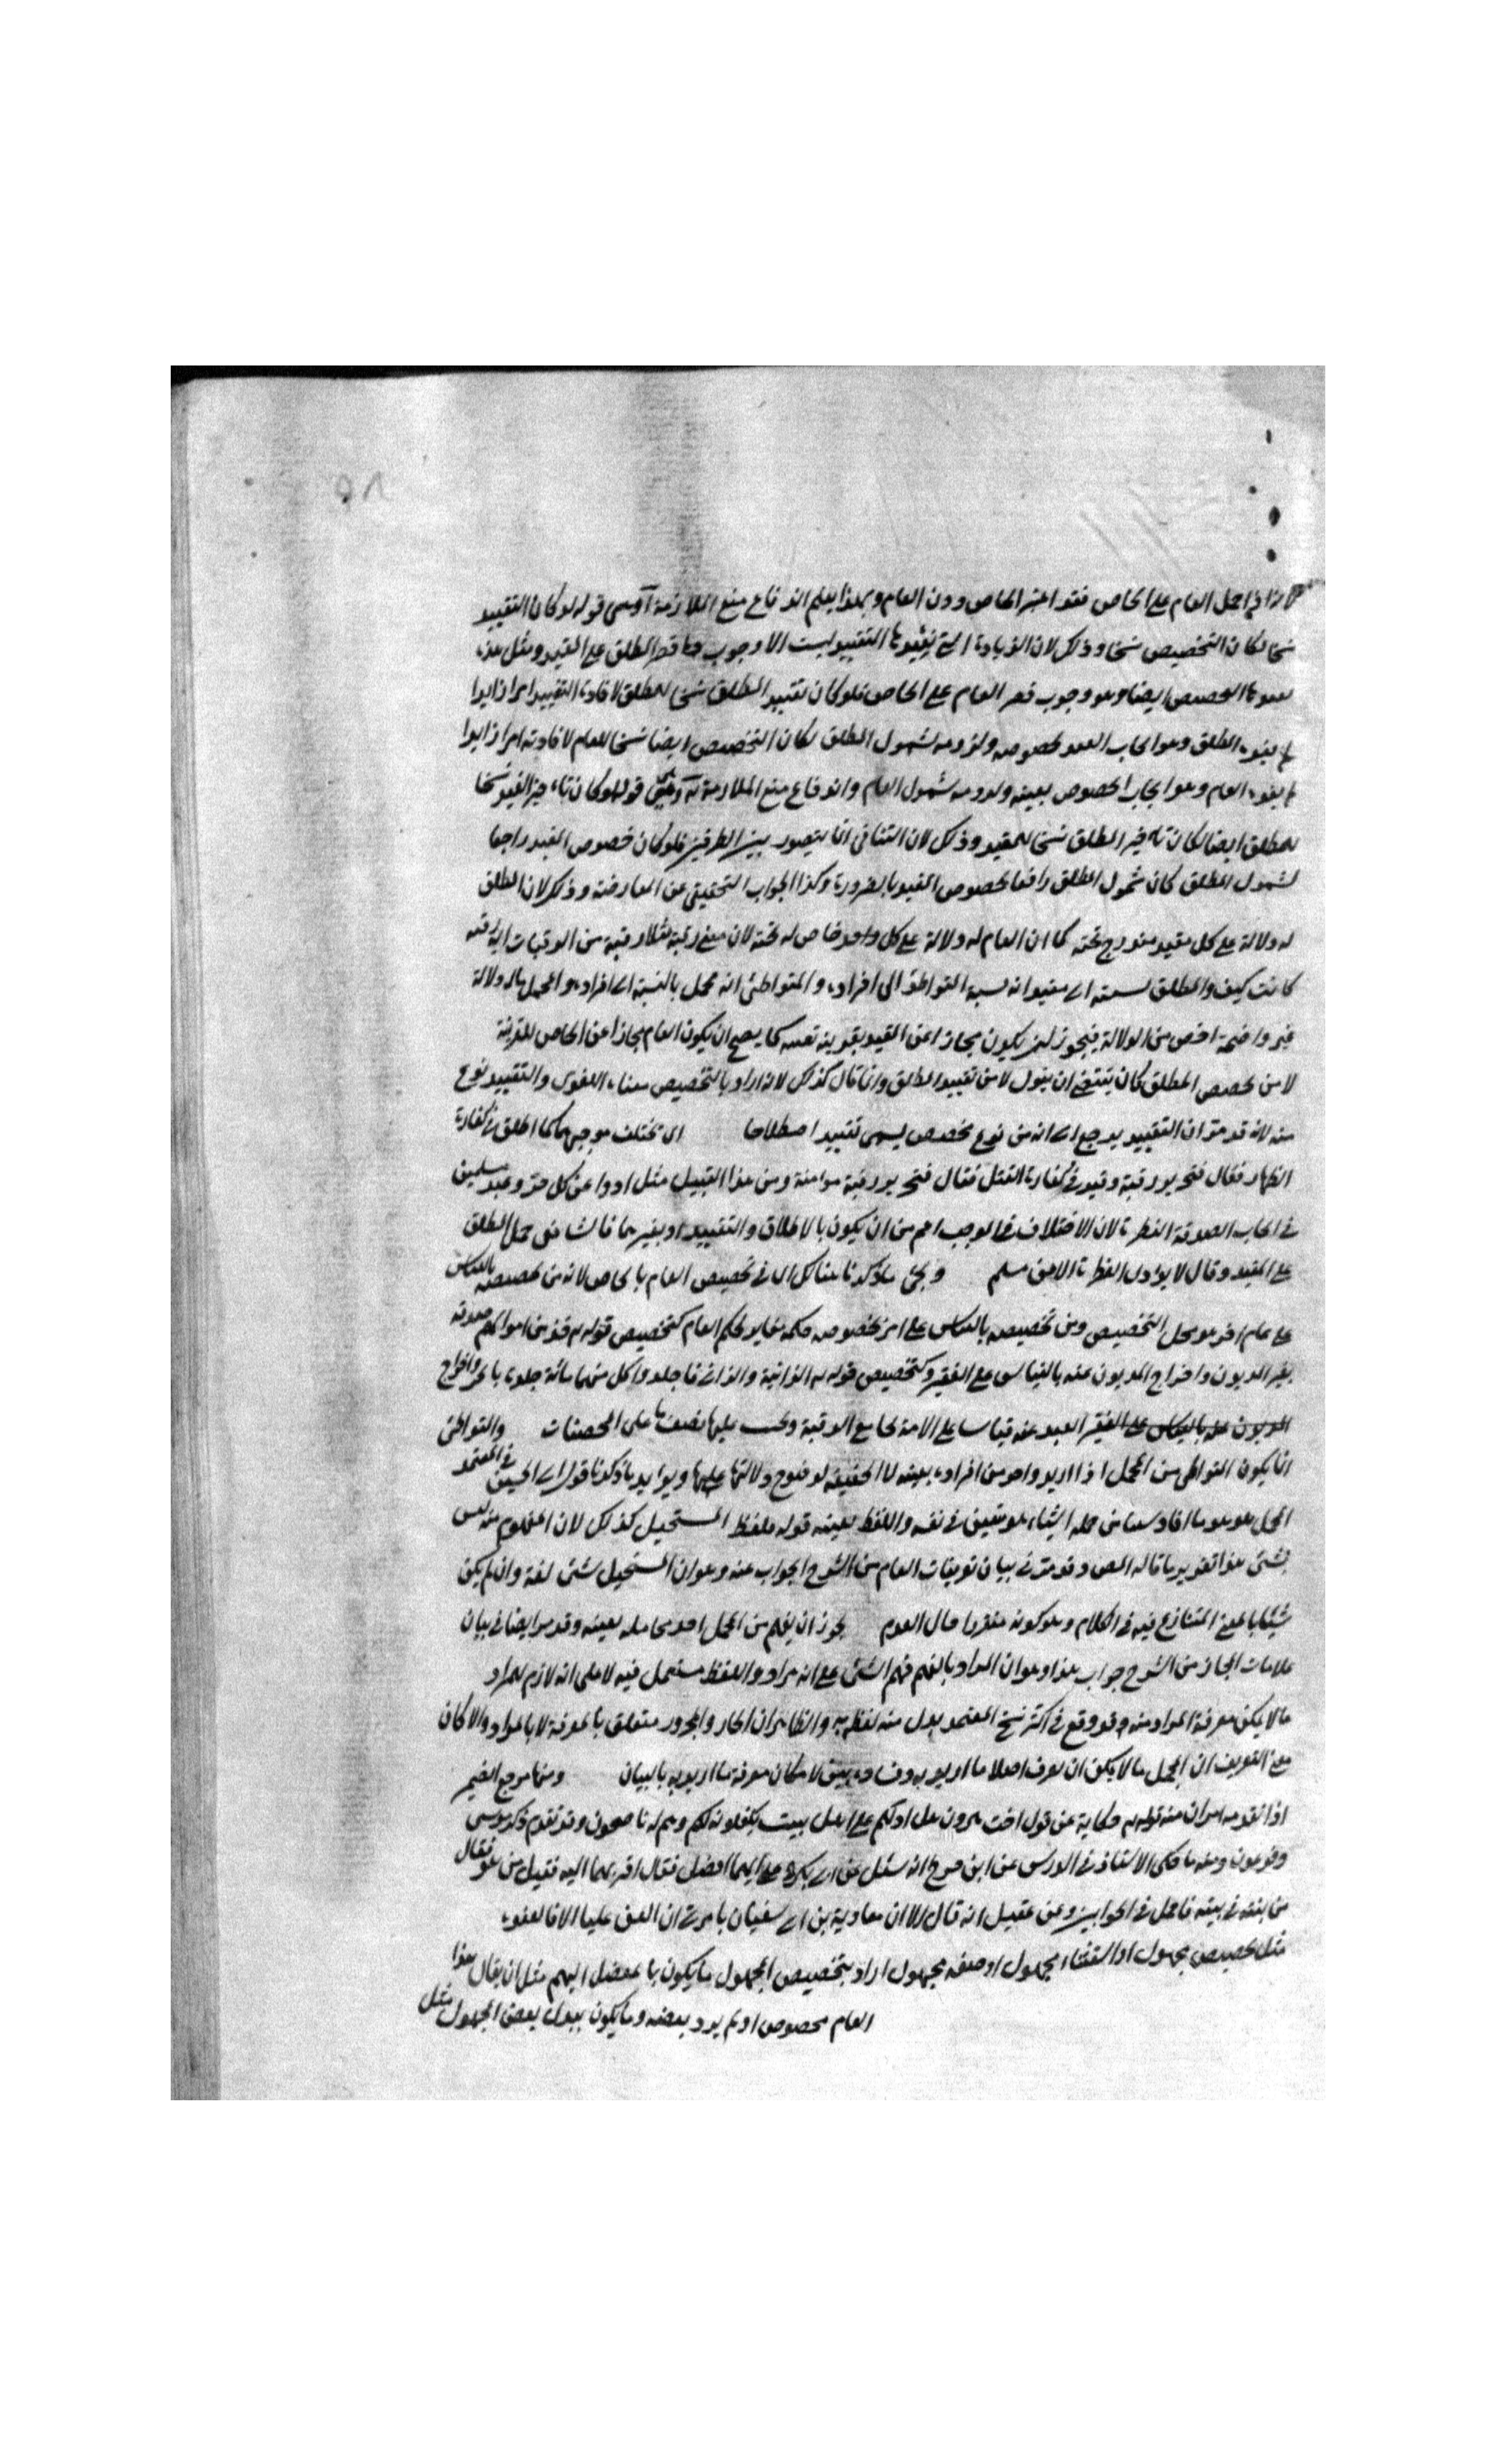 ٥٨
لانه اذا حمل العام على الخاص فقد اعتبر الخاص دون العام وبهذا يعلم اندفاع منع الملازمة قوله لو كان التقييد
نسخا لكان التخصيص نسخا وذلك لان الزيادة التي يفيدها التقييد ليست الا وجوب قصر المطلق على المقيد ومثل هذه
التخصيص ايضا وهو وجوب قصر العام على الخاص فلو كان تقييد المطلق نسخا للمطلق لافادة التقييد امرا زايدا
المطلق وهو ايجاب المقيد بخصوصه ولزومه لشمول المطلق لكان التخصيص ايضا نسخا للعام لافادته امرا زايدا
العام وهو ايجاب الخصوص بعينه ولزومه شمول العام واندفاع منع الملازمة قوله لو كان تاخير المقيد نسخا
للمطلق ايضا لكان تاخير المطلق نسخا للمقيد وذلك لان التنافي انما يتصور بين الطرفين فلو كان خصوص المقيد رافعا
لشمول المطلق كان شمول المطلق رافعا لخصوص المقيد بالضرورة وكذا الجواب التحقيقي عن المعارضة وذلك لان المطلق
له دلالة على كل مقيد مندرج تحته كما ان العام له دلالة على كل واحد خاص له تحته لان معنى رقبة مثلا رقبة من الرقبات اية رقبة
كانت كيف والمطلق نسبته الى مقيداته نسبة المتواطئ الى افراده والمتواطئ انه مجمل بالنسبة الى افراده والمجمل ماله دلالة
غير واضحة اخص من الدلالة فيجوز ان يكون مجازا عن المقيد بقرينة كما يصح ان يكون العام مجازا عن الخاص للقرينة
لا من تخصيص المطلق كان ينبغي ان يقول لا من تقييد المطلق وانما قال كذلك لانه اراد بالتخصيص معناه اللغوي والتقييد نوع
منه لانه قد مر ان التقييد يرجع الى انه من نوع تخصيص يسمى تقييدا اصطلاحا اي تختلف موجبهما كما اطلق في كفارة
الظهار فقال فتحرير رقبة وقيد في كفارة القتل فقال فتحرير رقبة مؤمنة ومن هذا القبيل مثل ادوا عن كل حر وعبد مسلمين
في ايجاب الصدقة الفطرة لان الاختلاف في الموجب اعم من ان يكون بالاطلاق والتقييد او بغيرهما فالشافعي حمل المطلق
على المقيد وقال لا يؤدى الفطرة الا عن مسلم ويجئ ما ذكرنا هناك اي في تخصيص العام بالخاص لانه من تخصيصه بالقياس
على عام اخر هو محل التخصيص ومن تخصيصه بالقياس على امر بخصوصه حكمه مغاير لحكم العام كتخصيص قوله تع خذ من اموالهم صدقة
بغير المديون واخراج المديون عنه بالقياس على الفقير وكتخصيص قوله تع الزانية والزاني فاجلدوا كل منهما مائة جلدة بالحر واخراج
العبد عنه قياسا على الامة بجامع الرقية وتجب عليها نصف ما على المحصنات والمتواطئ
انما يكون المتواطئ من المجمل اذا اريد واحد من افراده بعينه لا الحقيقة لوضوح دلالتها عليها ويؤيد ما ذكرنا قول ابي الحسين في المعتمد
المجمل هو ما افاد شيئا من جملة اشياء هو متعين في نفسه واللفظ لا يعينه قوله ولفظ المستحيل كذلك لان المفهوم منه ليس
بشئ هذا تقرير ما قاله المص وقد مر في بيان تعريفات العام من الشرح الجواب عنه وهو ان المستحيل شئ لغة وان لم يكن
شيئا بالمعنى المتنازع فيه في الكلام وهو كونه متقررا حال العدم يجوز ان يفهم من المجمل احد محامله لا بعينه وقد مر ايضا في بيان
علامات المجاز من الشرح جواب هذا وهو ان المراد بالفهم فهم الشئ على انه مراد واللفظ مستعمل فيه لا على انه لازم للمراد
ما لا يمكن معرفة المراد منه وقد وقع في اكثر نسخ المعتمد بدل منه لفظ به والظاهر ان الجار والمجرور متعلق بالمعرفة لا بالمراد والا كان
معنى التعريف ان المجمل ما لا يمكن ان يعرف اصلا ما اريد به وفساده بين لامكان معرفة ما اريد به بالبيان ومنها مرجع الضمير
اذا تقدمه امران منه قوله تع حكاية عن قول اخت هل ادلكم على اهل بيت يكفلونه لكم وهم له ناصحون وقد تقدم ذكر موسى
وفرعون ومنه ما حكى الاستاذ في الدرس عن ابن جريج انه سئل عن ابي بكر وعلي ايهما افضل فقال اقربهما اليه فقيل من هو فقال
من بنته في بيته فاجمل في الجوابين وعن عقيل انه قال الا ان معاوية بن ابي سفيان يامرني ان العن عليا الا فالعنوه
مثل تخصيص مجهول او استثناء مجهول او صفة مجهول اراد بتخصيص المجهول ما يكون بالمنفصل المبهم مثل ان يقال هذا
العام مخصوص او لم يرد بعضه وما يكون ببدل بعض المجهول مثل